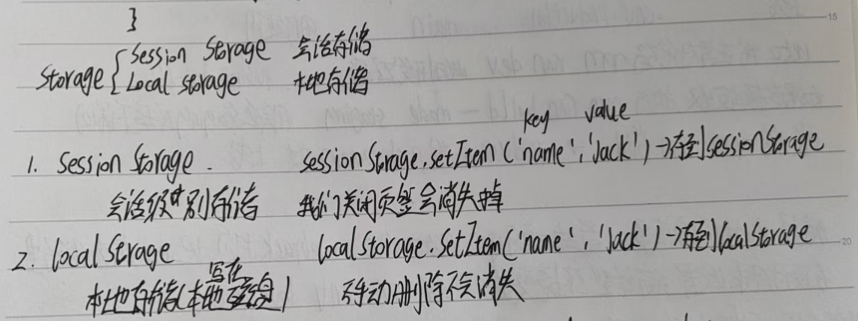 }
Storage { Session Storage 会话存储
Local storage 本地存储
key value
1. Session Storage. sessionStorage.setItem('name','Jack')→存到sessionStorage
会话级别存储 我们关闭页签会消失掉
2. local Storage localStorage.SetItem('name','Jack')→存到localStorage
写在
本地存储(本地磁盘) 不手动删除不会消失
15
20